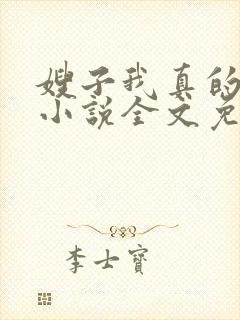 嫂子我真的
小说全文免
李士宝